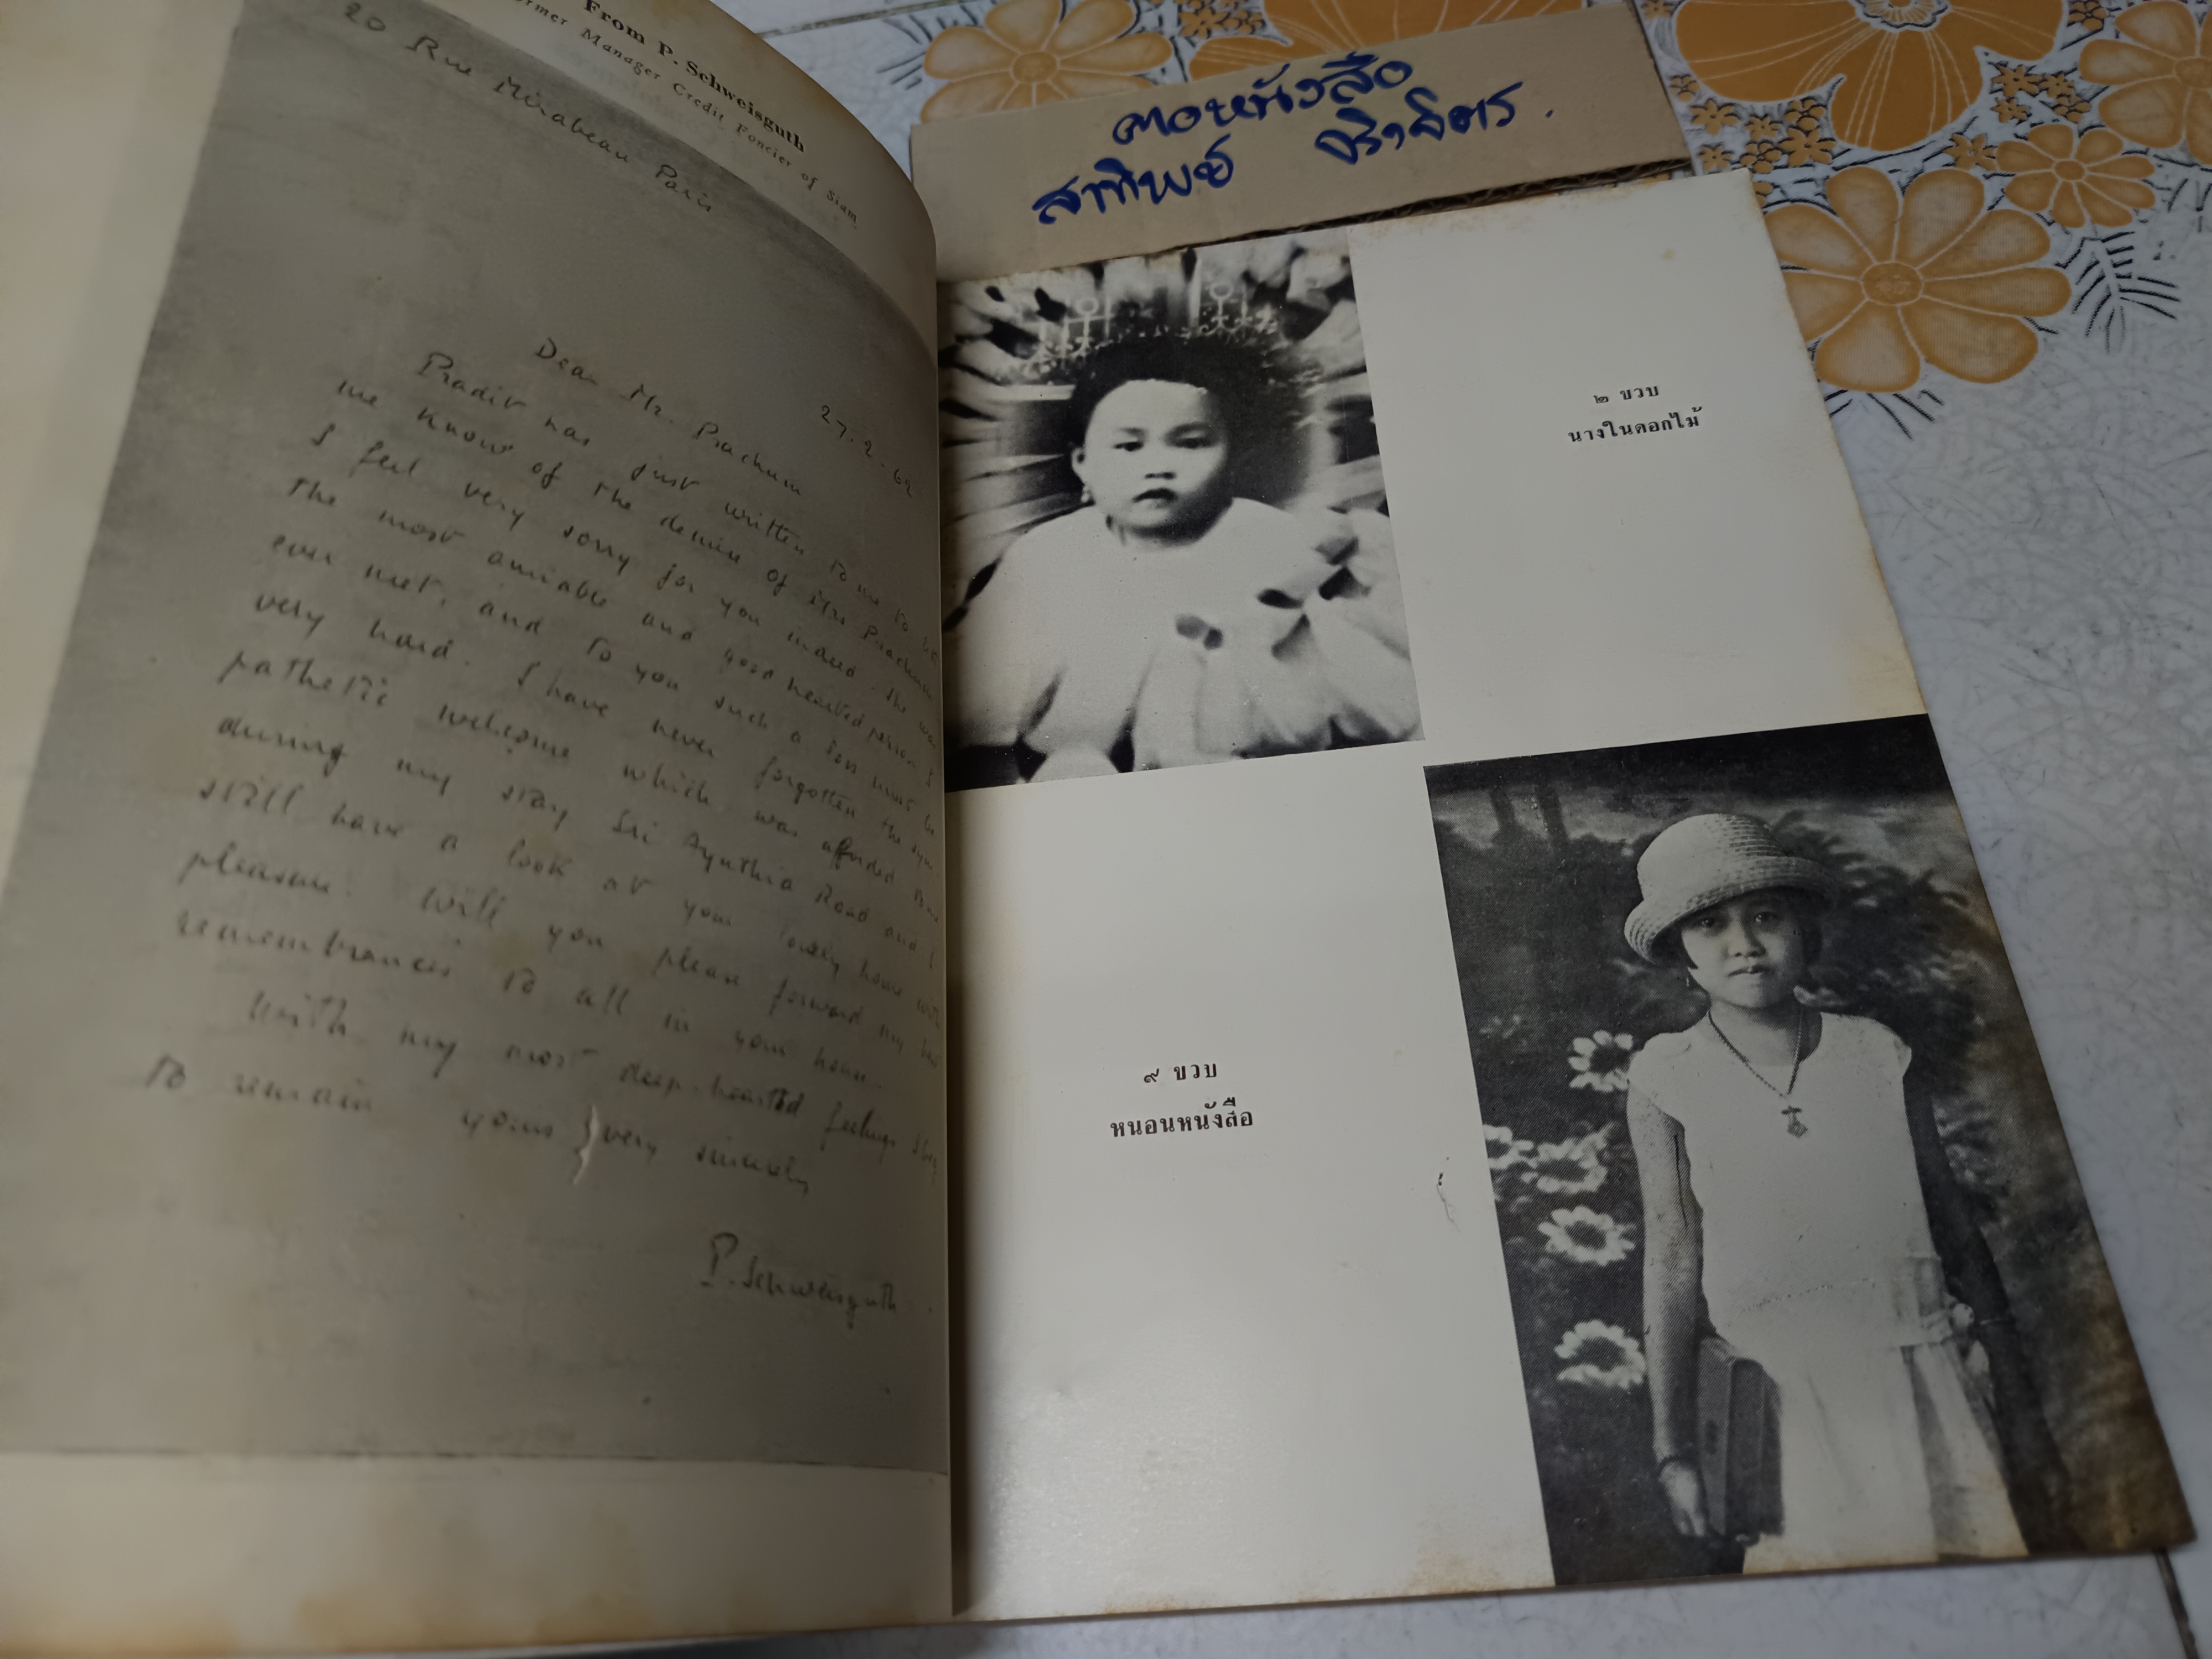 From P. Schweisguth
ormer Manager Credit Foncier of Siam
20 Rue Mirabeau Paris
27-2-62
Dear Mr. Prachum
Pradit has just written to me to let
me know of the demise of Mrs Prachum
I feel very sorry for you indeed. She was
the most amiable and good hearted person I
ever met, and to you such a loss must be
very hard. I have never forgotten the sym
pathetic welcome which was afforded
during my stay Sri Ayuthia Road and I
still have a look at your lovely home with
pleasure. Will you please forward my
remembrances to all in your house.
With my most deep-hearted feelings
to remain yours very sincerely
P. Schweisguth
คอหนังสือ
สาทิพย์
๒ ขวบ
นางในดอกไม้
๙ ขวบ
หนอนหนังสือ